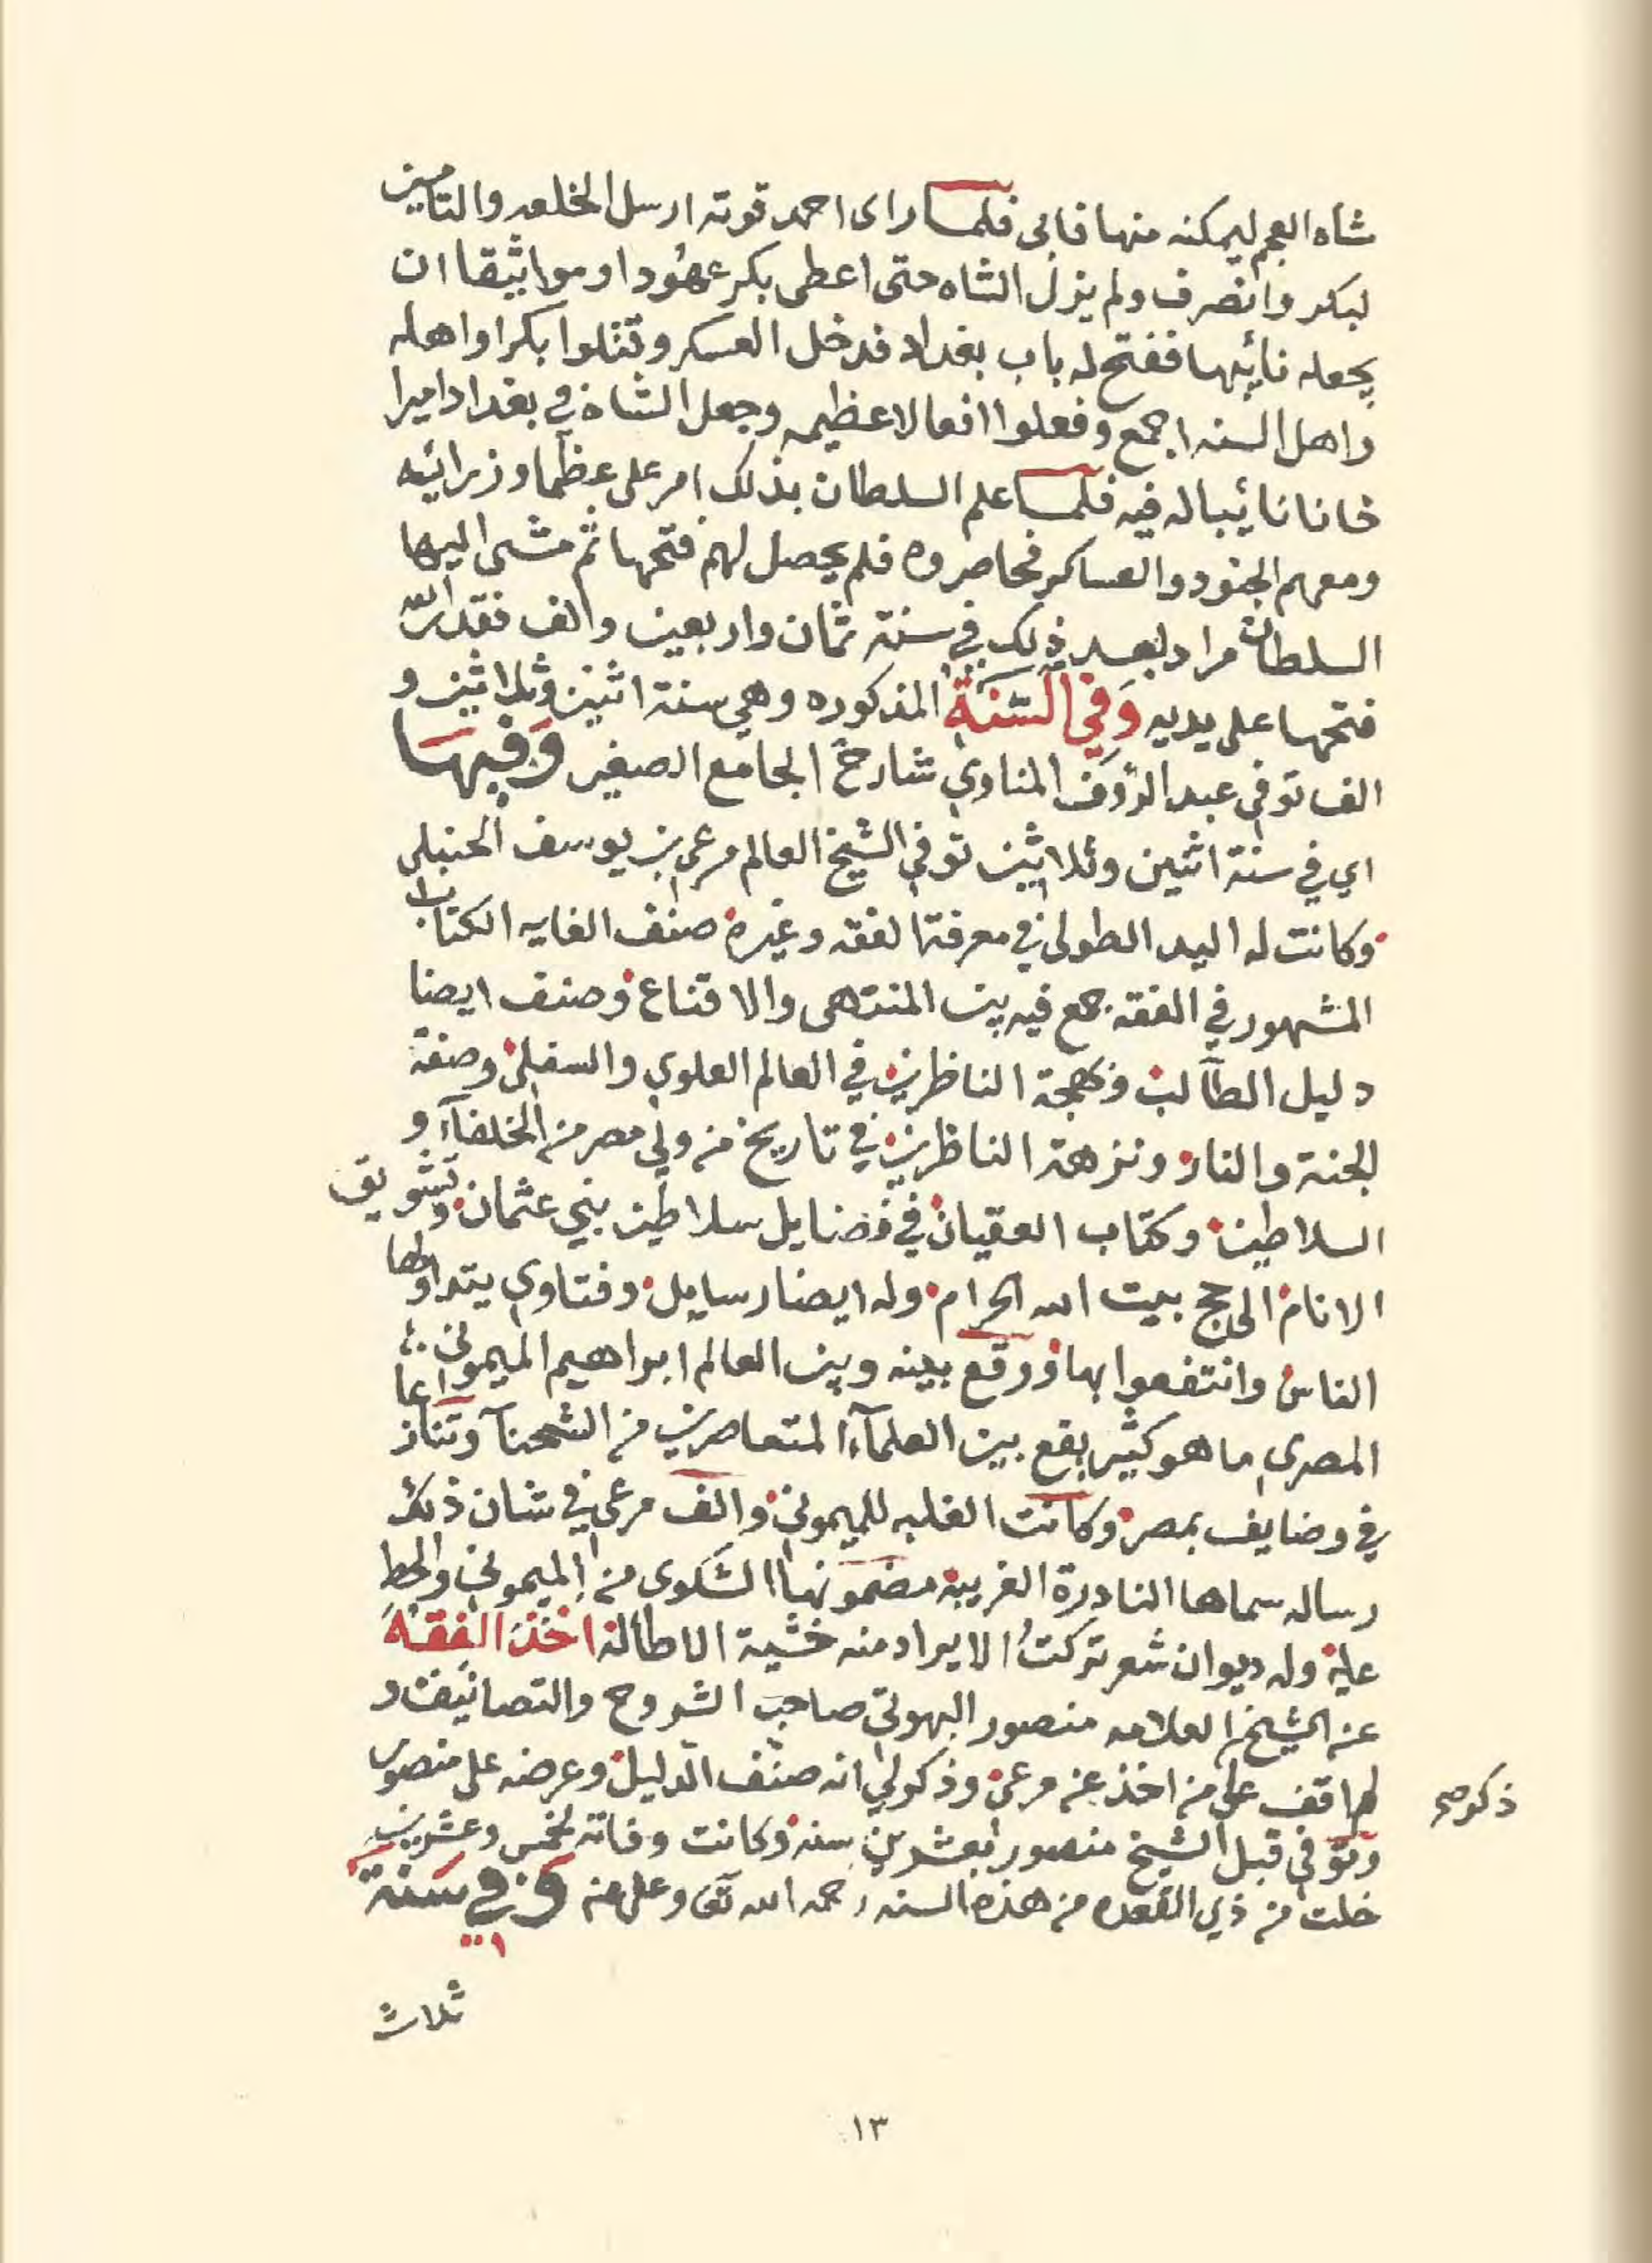 شاه العجم ليمكنه منها فابى فلما راى احمد قوته ارسل الخلعه والتامين
لبكر وانصرف ولم يزل الشاه حتى اعطى بكر عهودا ومواثيقا ان
يجعله نائبها ففتح له باب بغداد فدخل العسكر وقتلوا بكرا واهله
واهل السنه اجمع وفعلوا افعالا عظيمه وجعل الشاه في بغداد اميرا
خانا نائبا له فيه فلما علم السلطان بذلك امر على عظما وزرائه
ومعهم الجنود والعساكر فحاصروه فلم يحصل لهم فتحها ثم مشى اليها
السلطان مراد بعد ذلك في سنة ثمان واربعين والف فقدر الله
فتحها على يديه وفي السنة المذكوره وهي سنة اثنين وثلاثين و
الف توفي عبد الرؤف المناوي شارح الجامع الصغير وفيها
اي في سنة اثنين وثلاثين توفي الشيخ العالم مرعي بن يوسف الحنبلي
وكانت له اليد الطولى في معرفة الفقه وغيره صنف الغايه الكتاب
المشهور في الفقه جمع فيه بين المنتهى والاقناع وصنف ايضا
دليل الطالب وبهجة الناظرين في العالم العلوي والسفلي وصفة
الجنة والنار ونزهة الناظرين في تاريخ من ولي مصر من الخلفآء و
السلاطين وكتاب العقيان في فضايل سلاطين بني عثمان وتشويق
الانام الى حج بيت الله الحرام وله ايضا رسايل وفتاوي يتداولها
الناس وانتفعوا بها ووقع بينه وبين العالم ابراهيم الميموني
المصري ما هو كثير يقع بين العلمآء المتعاصرين من الشحنآ وتنازعا
في وضايف بمصر وكانت الغلبه للميموني والف مرعي في شان ذلك
رساله سماها النادرة الغريبه مضمونها الشكوى من الميموني والحط
عليه وله ديوان شعر تركت الايراد منه خشية الاطالة اخذ الفقه
عنه الشيخ العلامه منصور البهوتي صاحب الشروح والتصانيف و
لم اقف على من اخذ عنه مرعي وذكر لي انه صنف الدليل وعرضه على منصور
وتوفي قبل الشيخ منصور بعشرين سنه وكانت وفاته لخمس وعشرين
خلت من ذي القعده من هذه السنه رحمه الله تعا وعفى عنه وفي سنة
ثلاث
ذكر صح
١٣